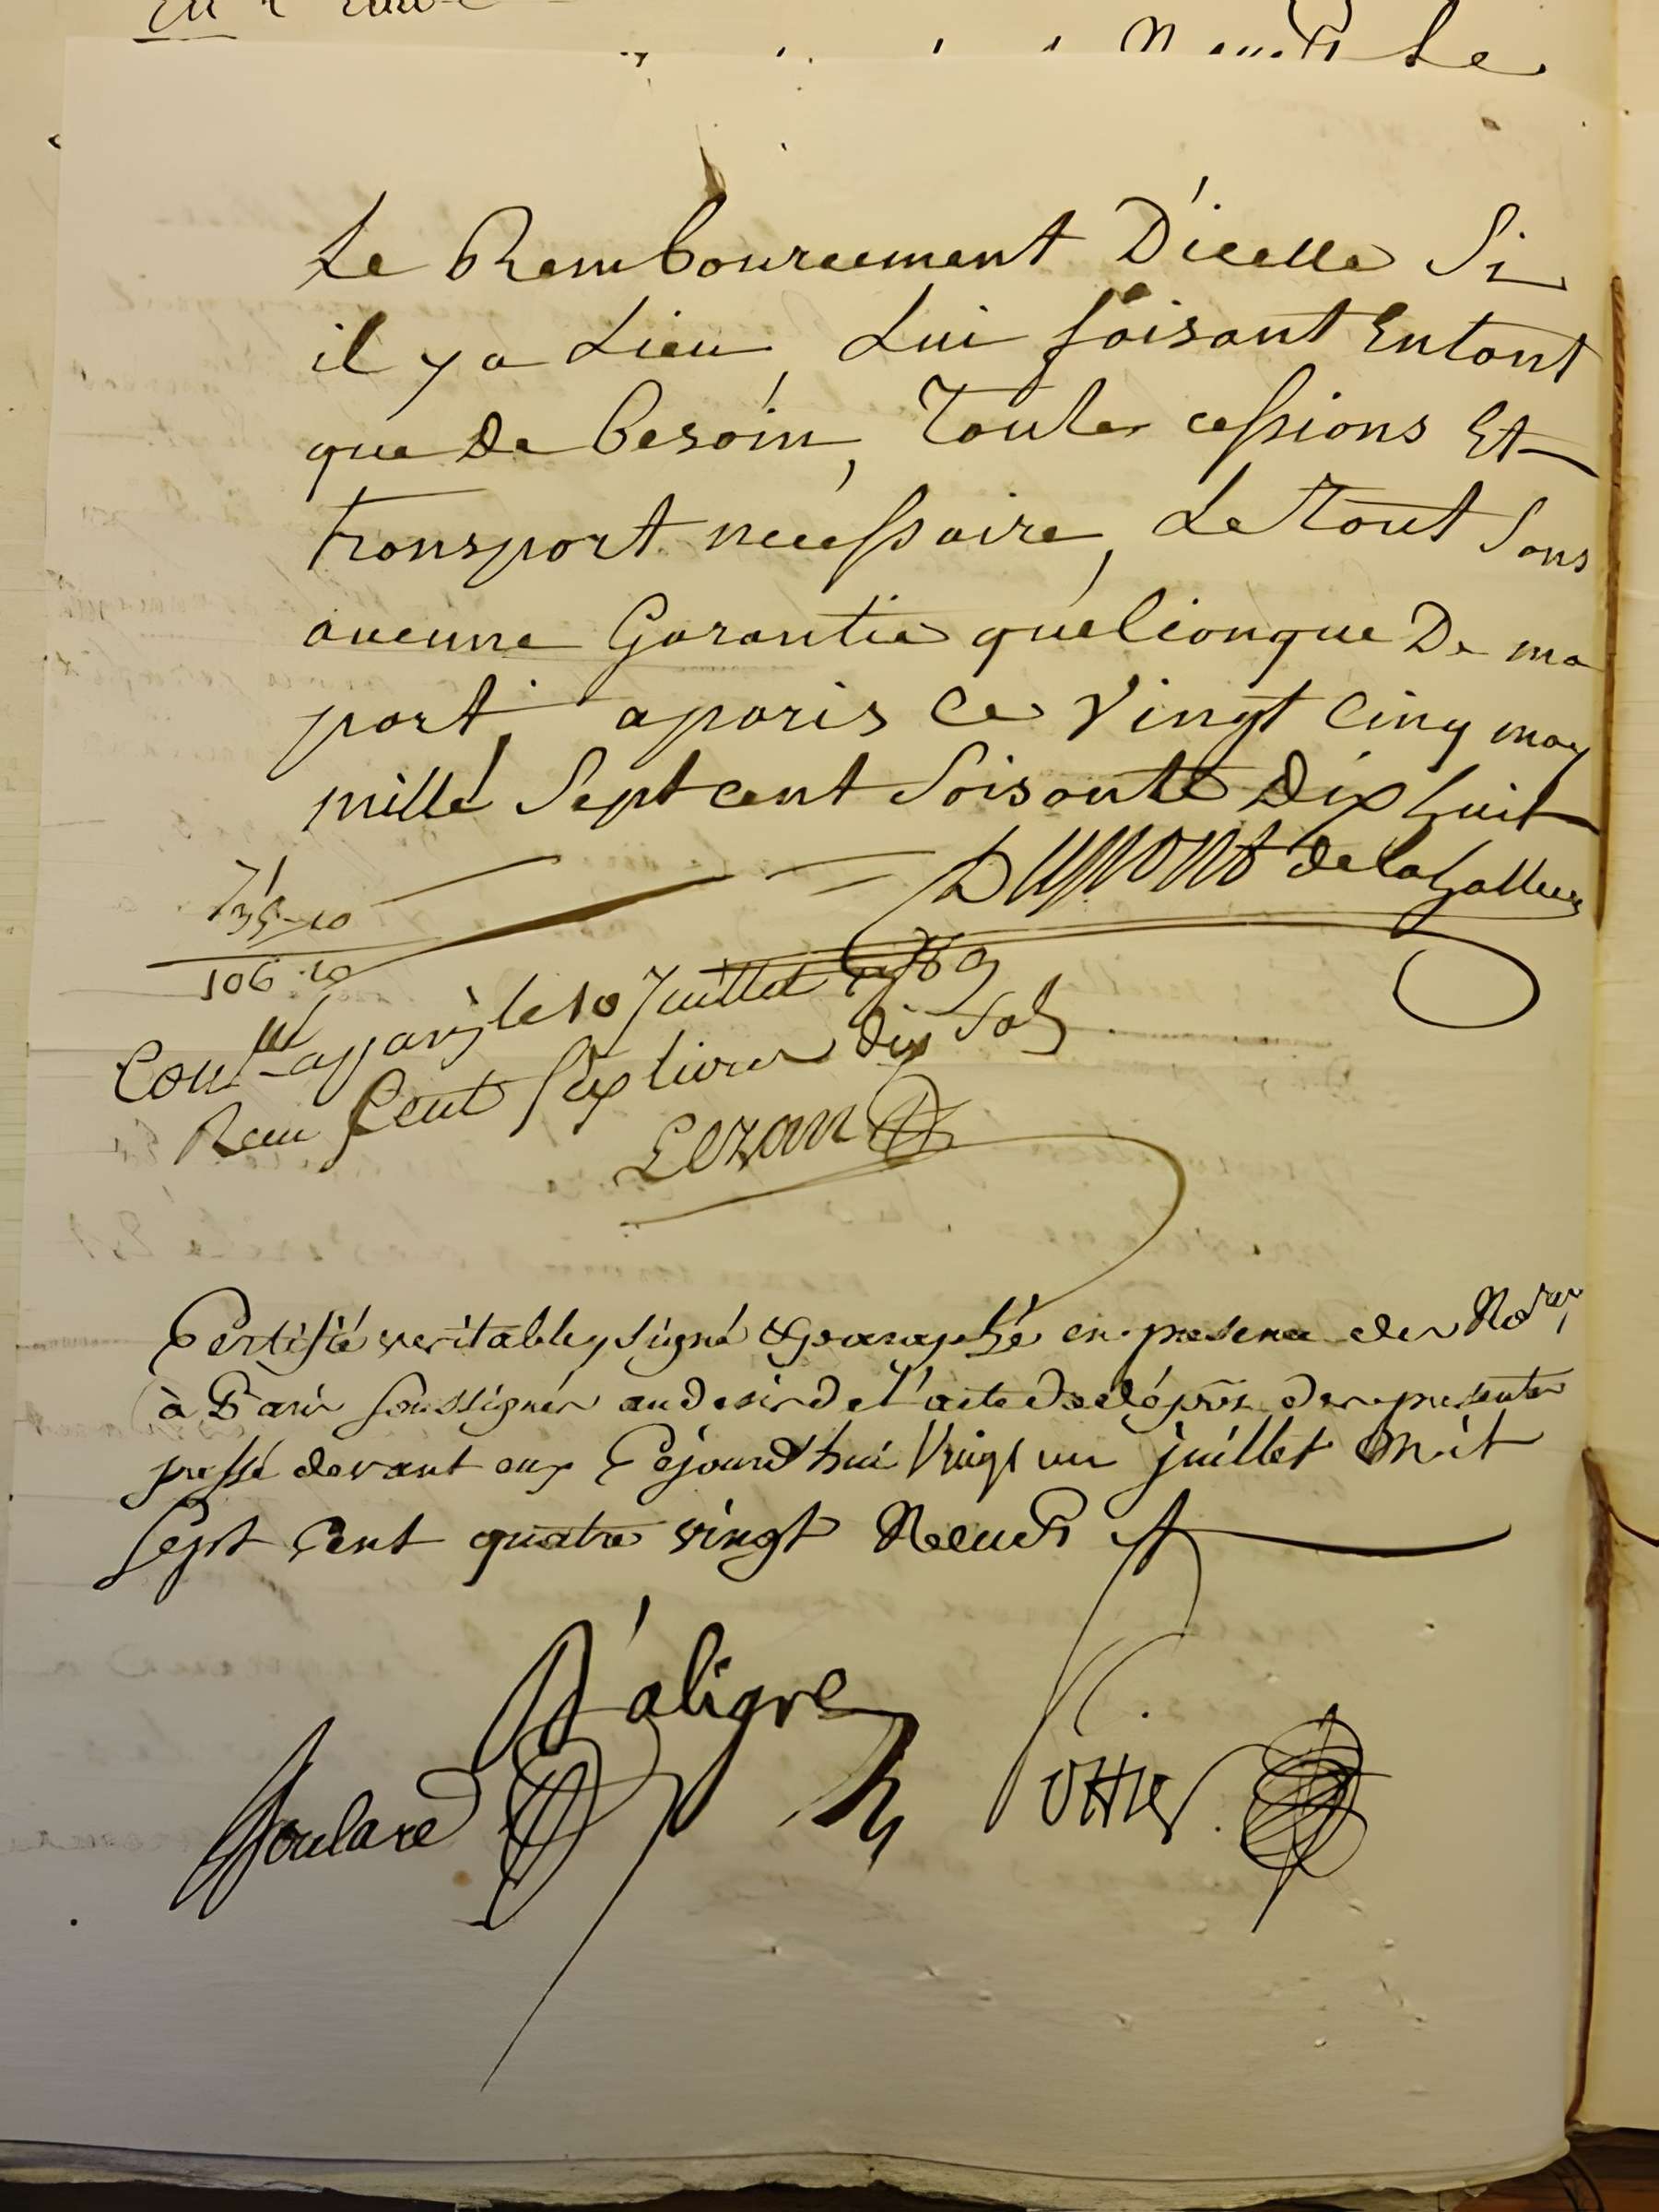 Le Rembourcement D'icelle Si
il y a Lieu, Lui faisant Entant
que de besoin, Toutes cessions Et
transport necessaire, Le Tout Sans
aucune Garantie quelconque De ma
part, a paris ce Vingt Cinq may
mille Sept cent Soisante Dix huit
Dumont de la
71
35-10
106.10
Con.lle a paris le 10 Juillet 1789
Recu Cent Six livres dix Sols
Lezan
Certifié veritable, signé & paraphé en presence des No.res
à Paris soussignés au desir de l'acte de dépôt des presentes
passé devant eux Cejourd'hui Vingt un juillet Mil
Sept Cent quatre vingt Neuf
D'aligre
Goulard
Pottier